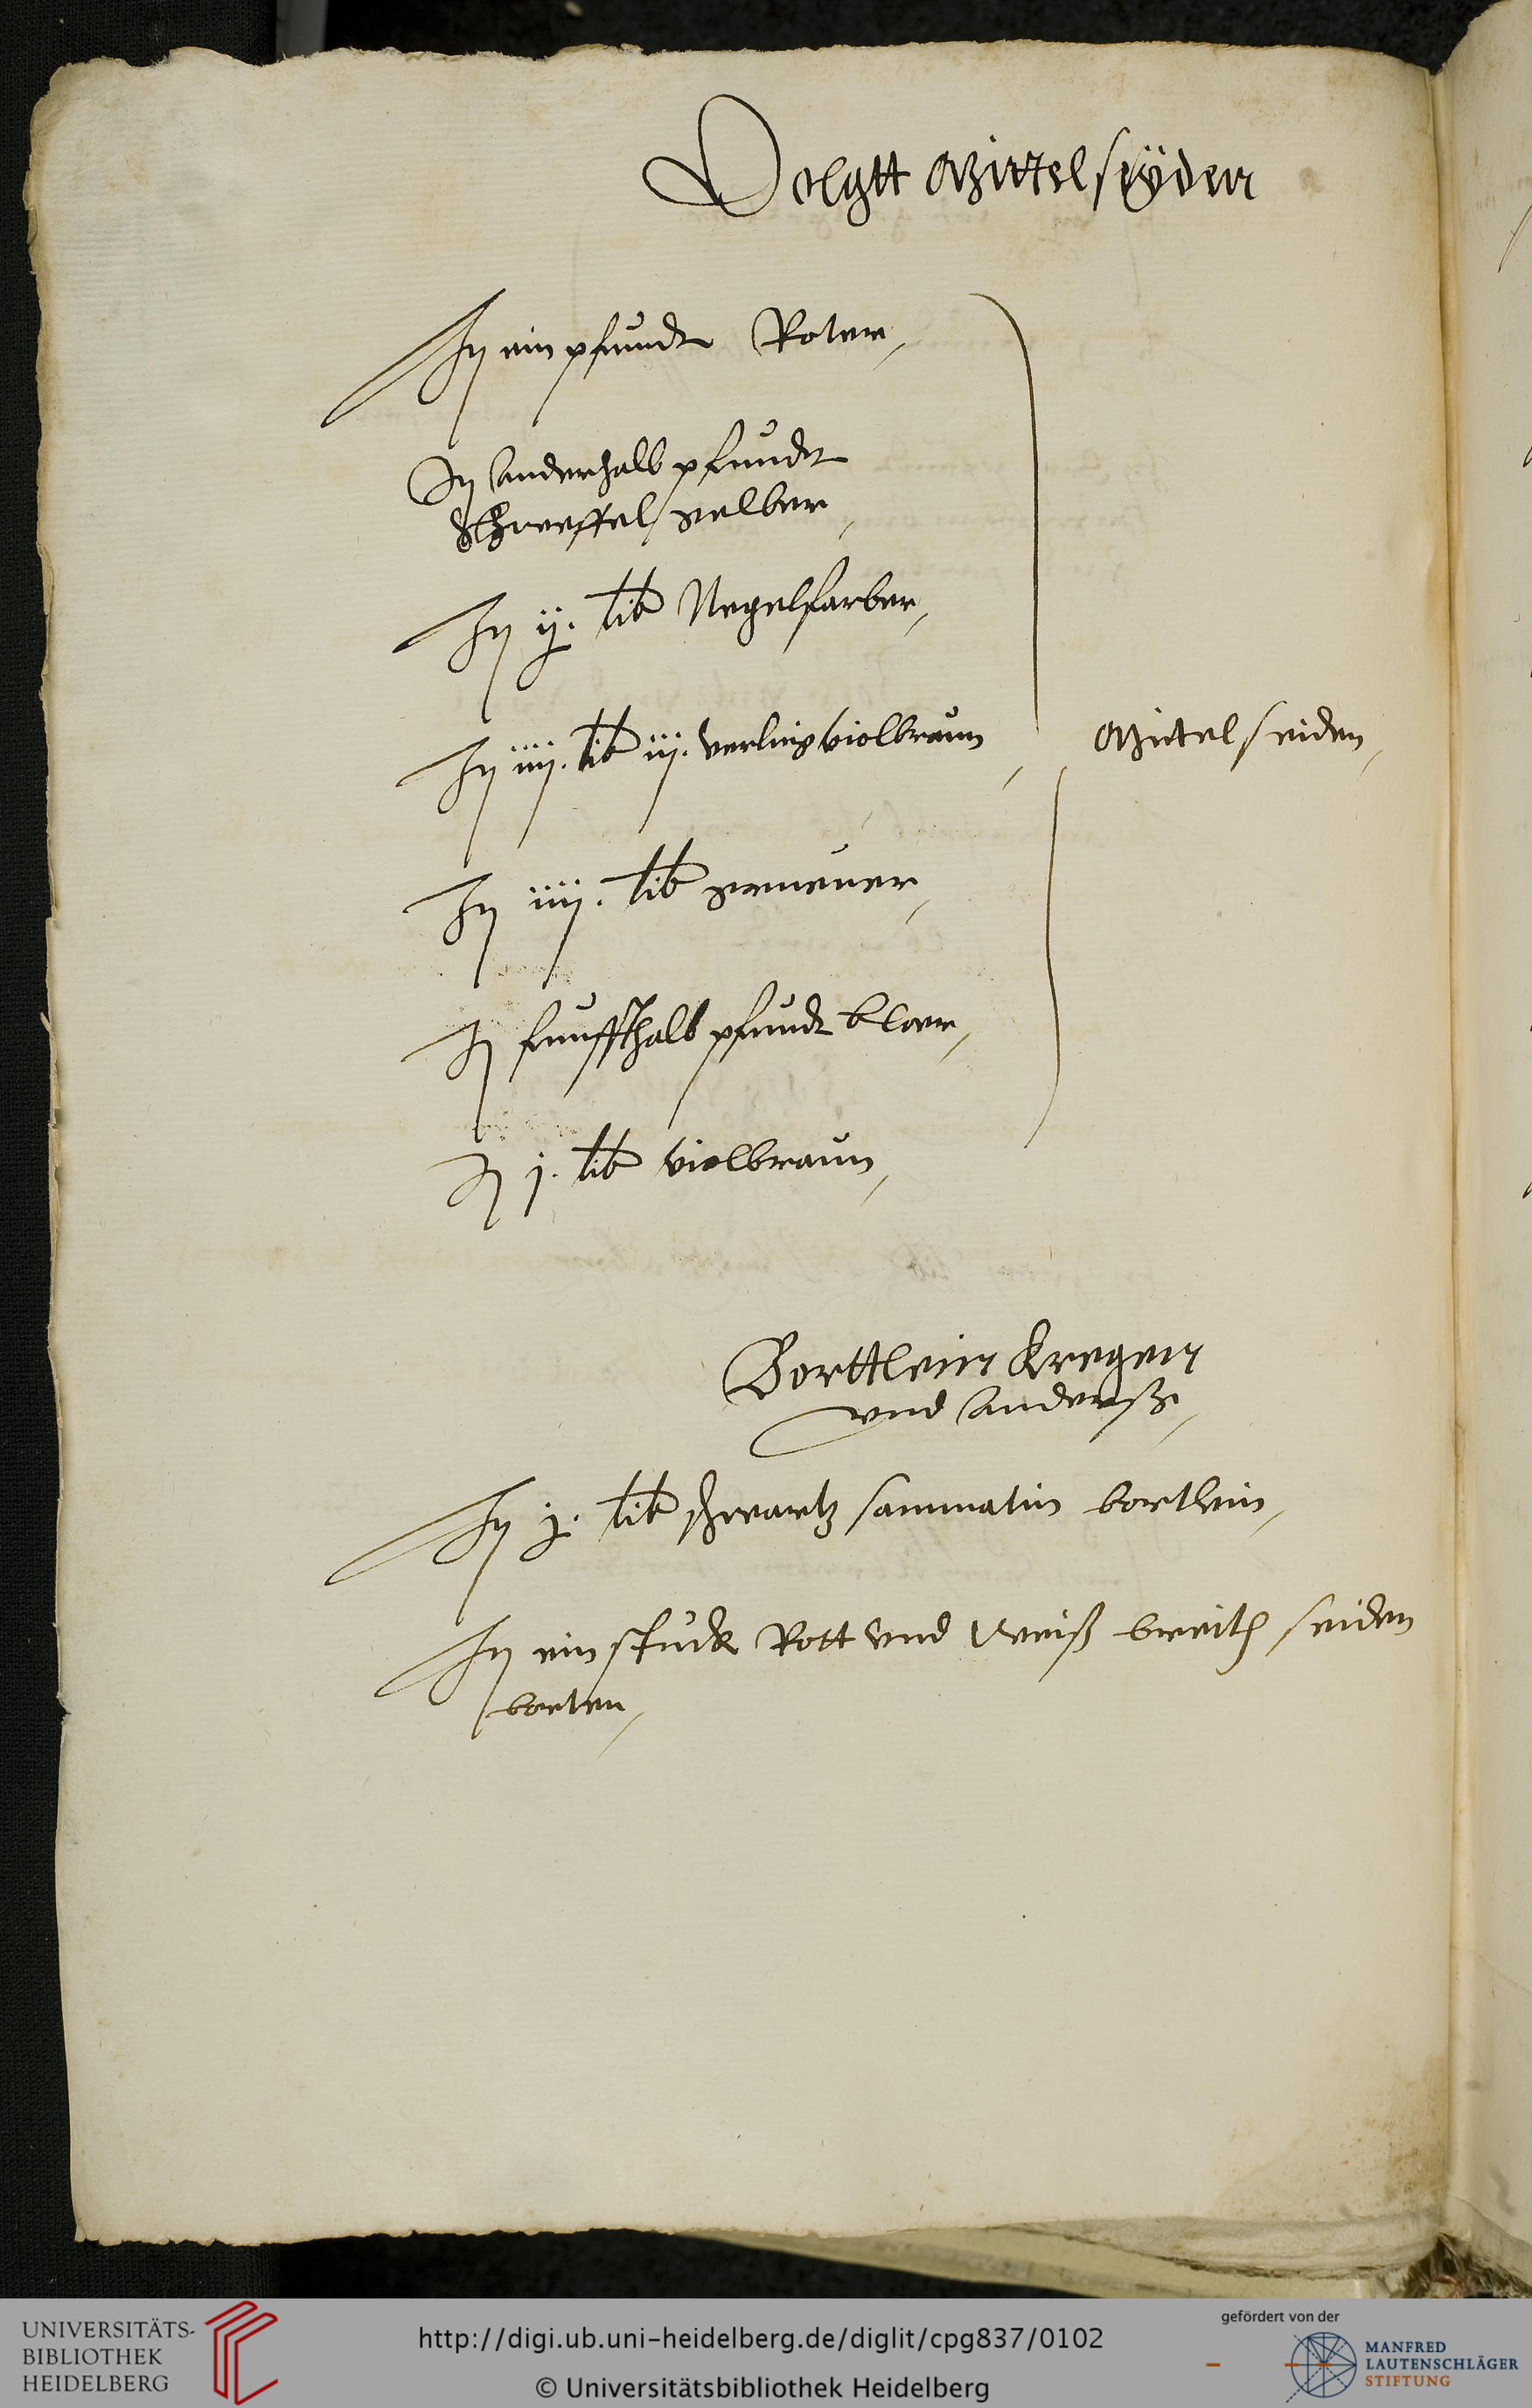 Volgtt Mittel seyden
It ein pfundt Roter,
It Anderhalb pfundt
Schweffel gelber,
It ij. lib Negelfarber,
It iiij. lib iij. verling violbraun,
Mittel seiden,
It iiij. lib gruener,
It funffthalb pfundt bloer,
It j. lib violbraun,
Borttlein Kregen
vnd Anderß,
It j. lib schwartz sammatin bortlein,
It ein stuck Rott vnd Weiß breith seiden
borten,
UNIVERSITÄTS-
BIBLIOTHEK
HEIDELBERG
http://digi.ub.uni-heidelberg.de/diglit/cpg837/0102
© Universitätsbibliothek Heidelberg
gefördert von der
MANFRED
LAUTENSCHLÄGER
STIFTUNG